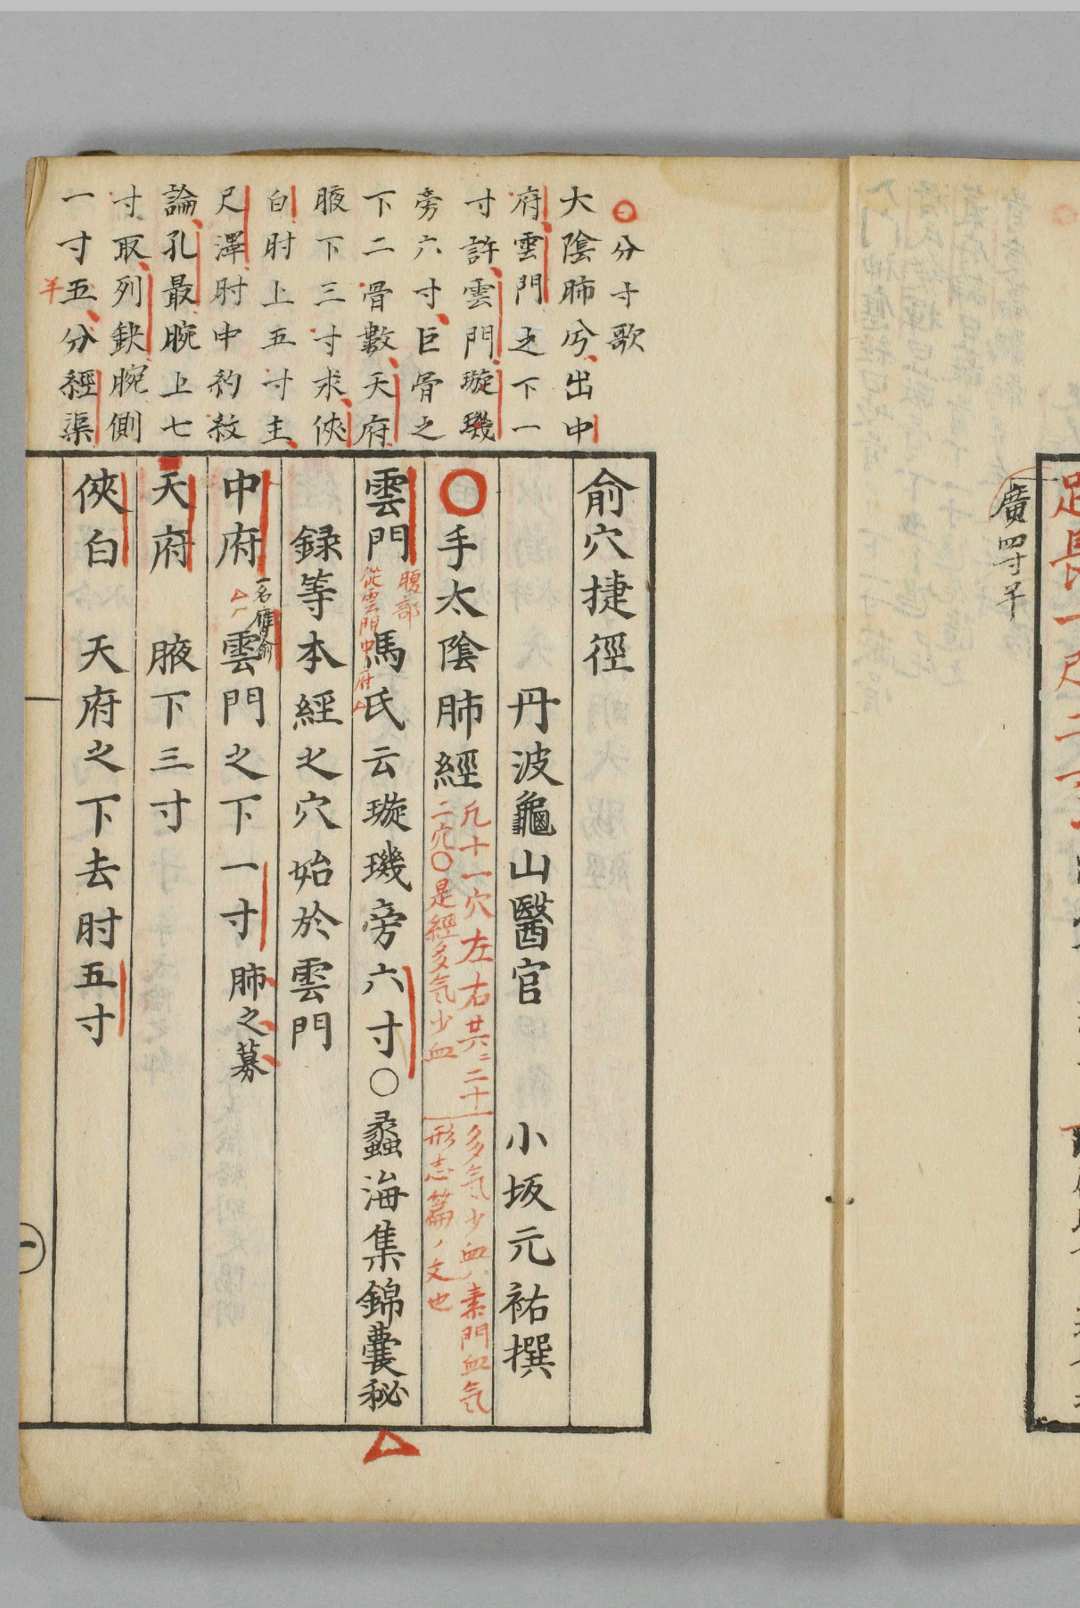 廣四寸半
分寸歌
大陰肺兮出中
府雲門之下一
寸許雲門璇璣
旁六寸巨骨之
下二骨數天府
腋下三寸求俠
白肘上五寸主
尺澤肘中約紋
論孔最腕上七
寸取列缺腕側
一寸五分經渠
半
俞穴捷徑
丹波龜山醫官 小坂元祐撰
〇手太陰肺經
凡十一穴左右共二十
二穴〇是經多気少血
多気少血ハ素門血気
形志篇ノ文也
雲門 馬氏云璇璣旁六寸〇蠡海集錦囊秘
腹部
從雲門中府
録等本經之穴始於雲門
中府 雲門之下一寸 肺之募
一名膺俞
天府 腋下三寸
俠白 天府之下去肘五寸
一